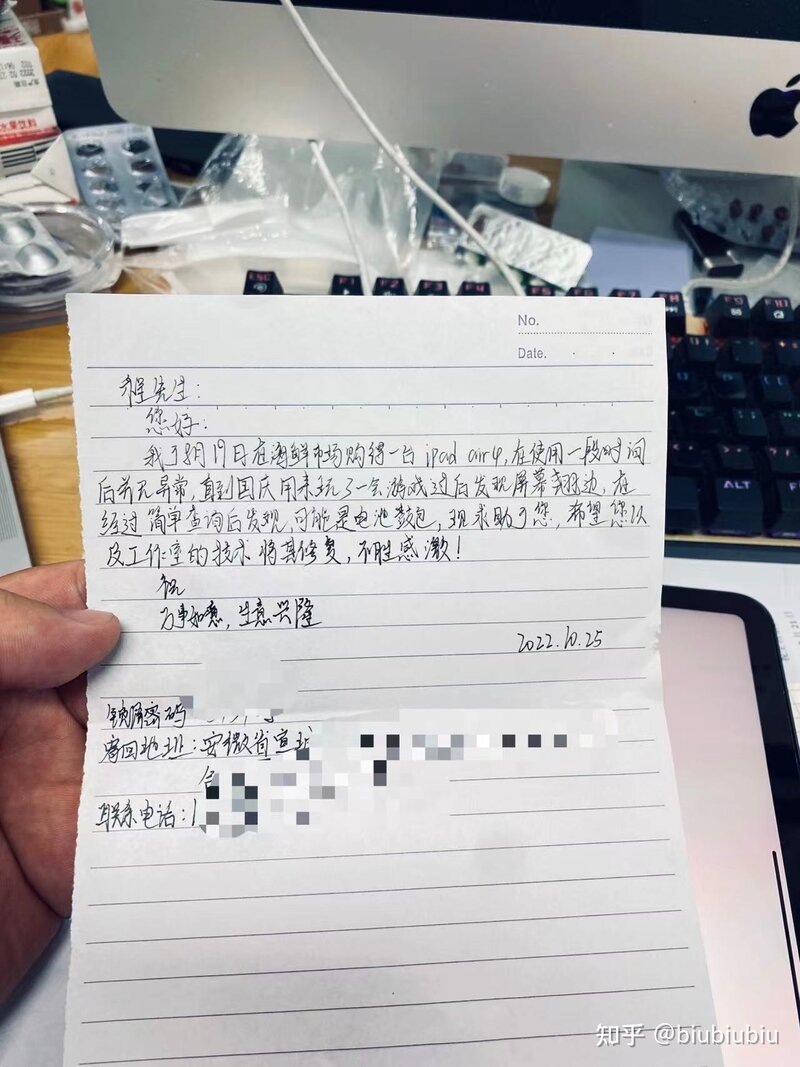 水果饮料
ESC
F1
F2
F3
F4
F5
ALT
No.
Date.
程先生:
您好:
我于8月19日在海鲜市场购得一台ipad air4,在使用一段时间
后并无异常,直到国庆用来玩了一会游戏过后发现屏幕翘边,在
经过简单查询后发现,可能是电池鼓包,现求助于您,希望您以
及工作室的技术将其修复,不胜感激!
祝
万事如意,生意兴隆
2022.10.25
锁屏密码
寄回地址:安徽省宣城
联系电话:1
知乎 @biubiubiu